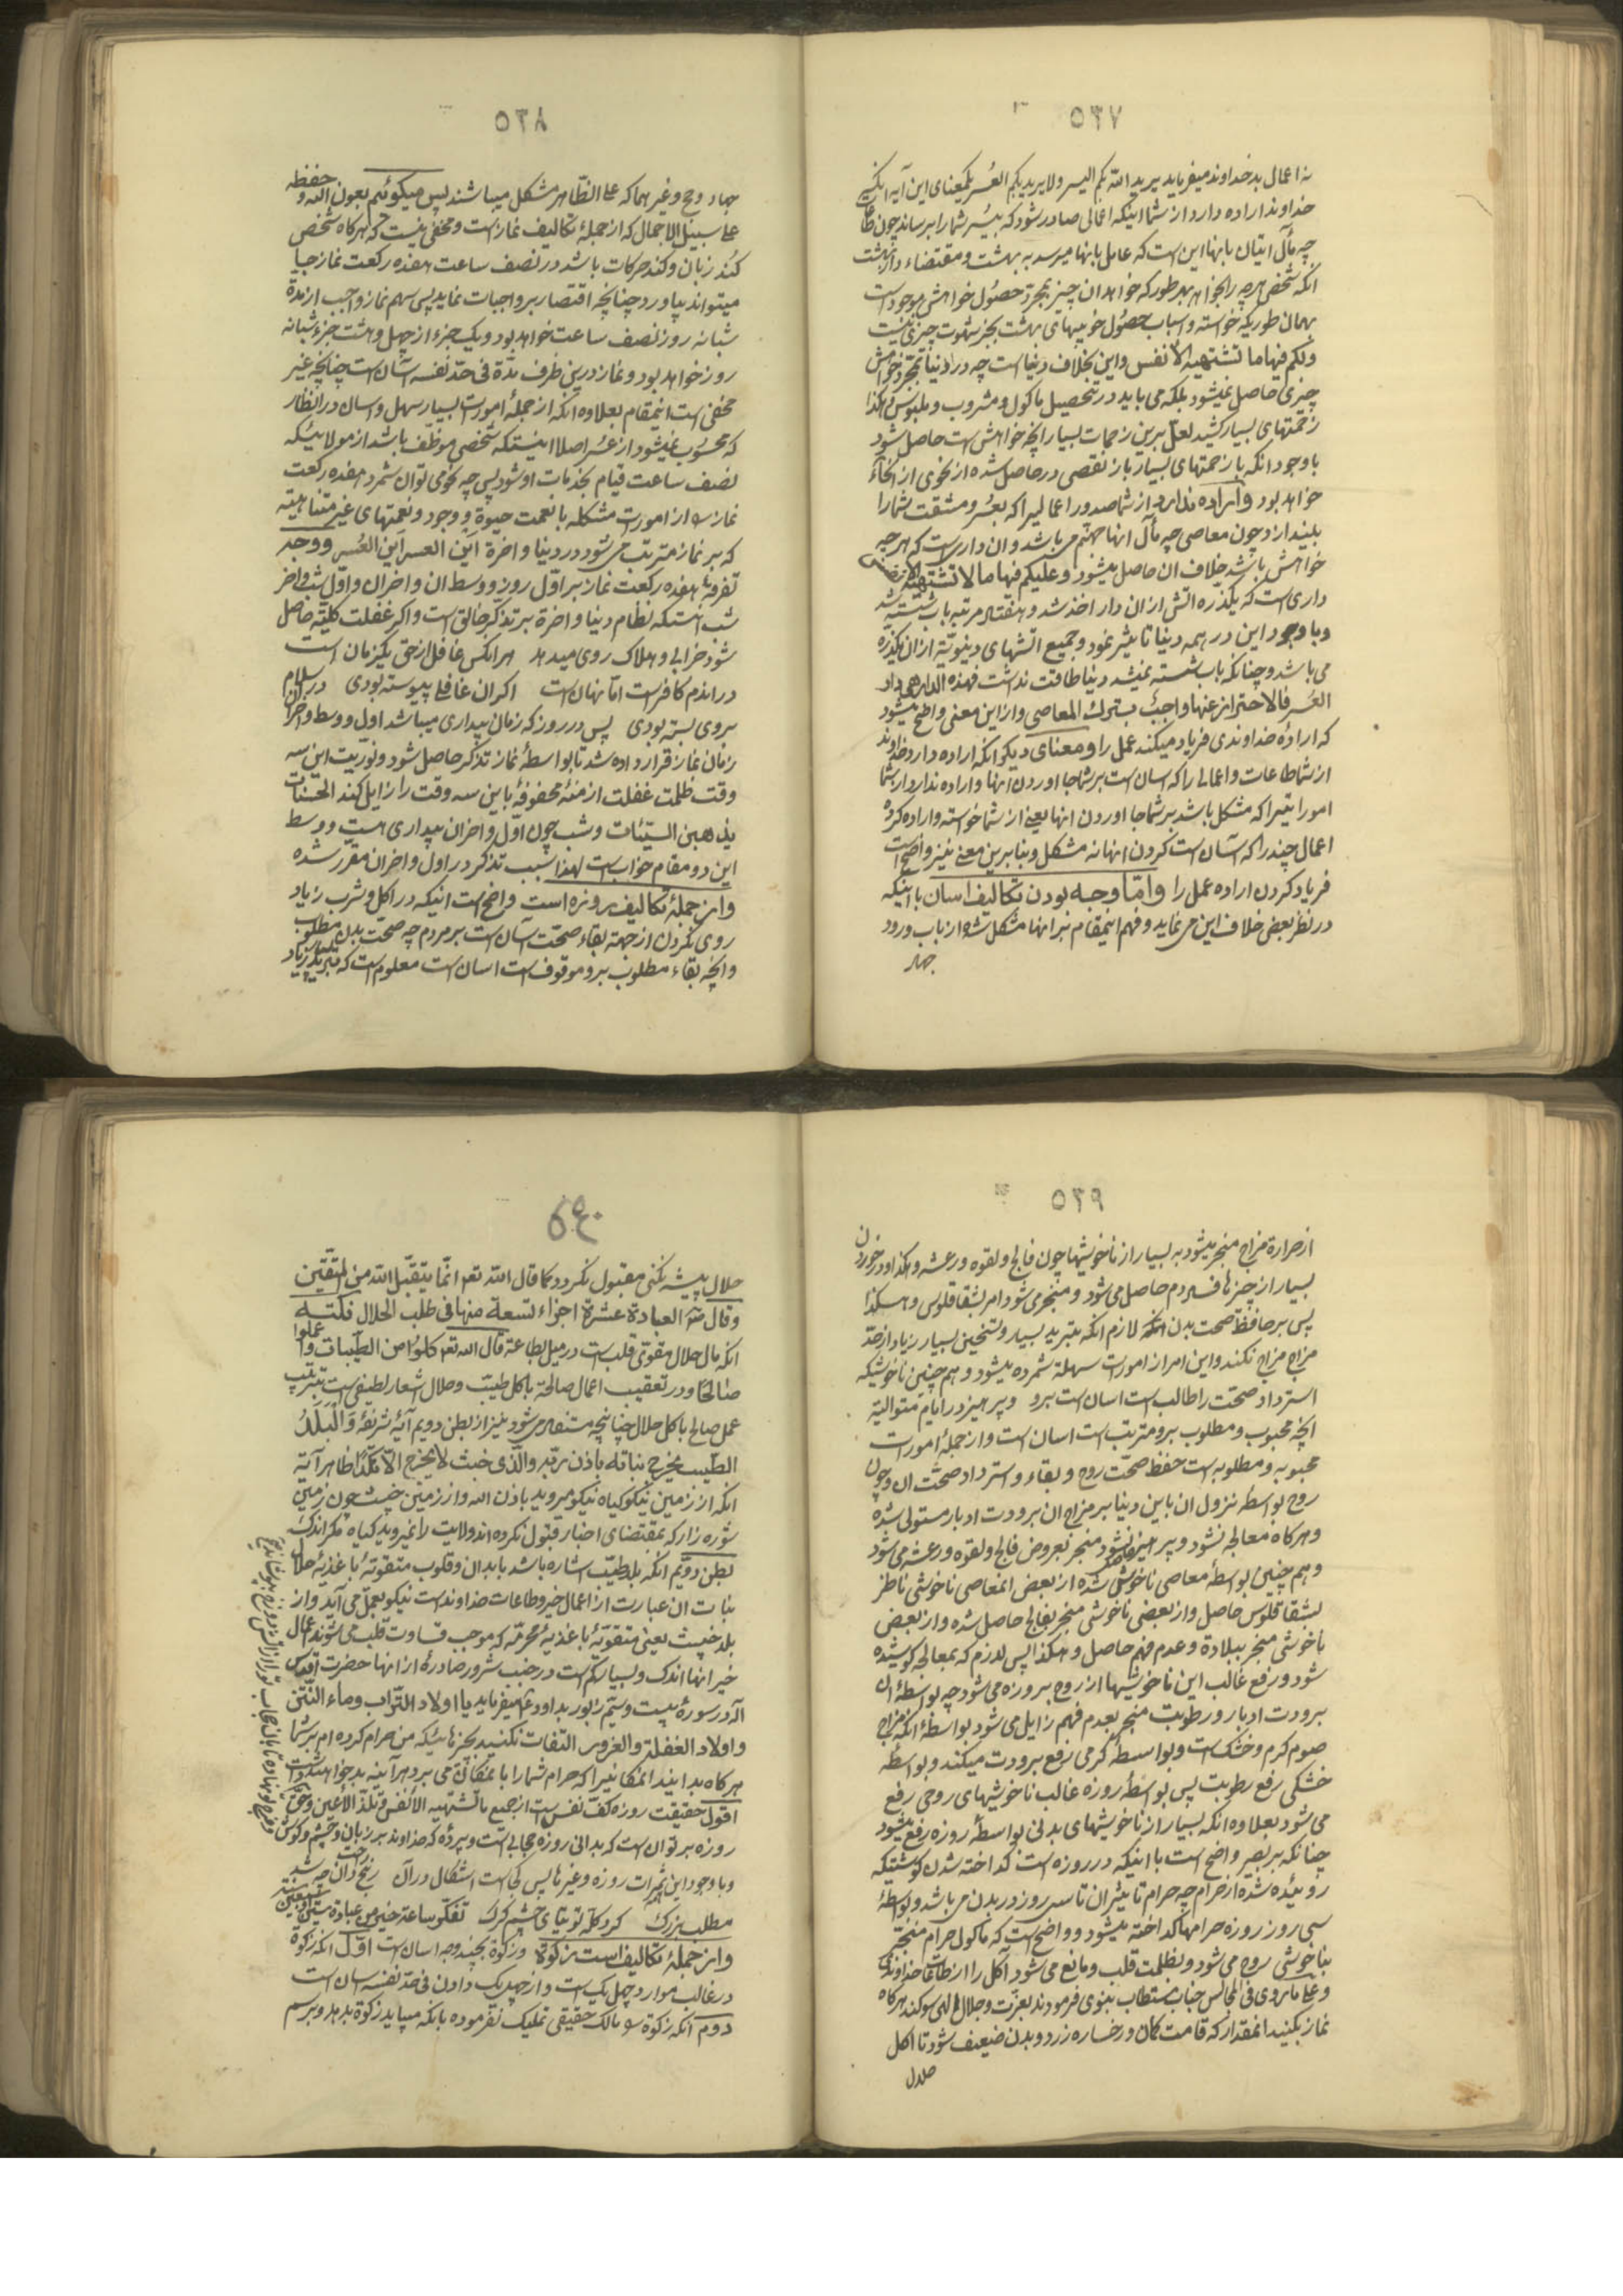 ۵۳۷
نه اعمال بد خداوند میفرماید یرید الله بکم الیسر ولا یرید بکم العسر یکمعنای این آیه انکسی
خداوند اراده دارد از شما اینکه اعمالی صادر شود که بیسر شما را برساند چون طاعات
چه مآل اتیان بانها این است که عامل بانها میرسد به بهشت و مقتضاء دار بهشت
انکه شخص هرچه را بخواهد بهر طور که خواهد ان چیز بمجرد حصول خواهش موجود است
بهمان طوریکه خواسته و اسباب حصول خوبیهای بهشت بجز شهوت چیزی نیست
ولکم فیها ما تشتهیه الانفس و این بخلاف دنیا است چه در دنیا بمجرد خواهش
چیزی حاصل نمیشود بلکه می باید در تحصیل ماکول و مشروب و ملبوس و هکذا
زحمتهای بسیار کشید لعل برین زحمات بسیار انچه خواهش است حاصل شود
باوجود انکه با زحمتهای بسیار باز نقصی در حاصل شده از نحوی از انحاء
خواهد بود و اراده ندارد از شما صدور اعمالیرا که بعسر و مشقت شما را
بیندازد چون معاصی چه مآل انها جهنم می باشد و ان داریست که هرچه
خواهش باشد خلاف ان حاصل میشود و علیکم فیها ما لا تشتهیه الانفس
داری است که یکذره اتش از ان دار اخذ شد و هفتاد مرتبه باب شسته شد
و با وجود این در همه دنیا تاثیر نمود و جمیع اتشهای دنیویه از ان یکذره
می باشد و چنانکه باب شسته نمیشد دنیا طاقت نداشت فهذه الدار هی دار
العسر فالاحتراز عنها واجب بترک المعاصی و از این معنی واضح میشود
که ارادهٔ خداوندی فریاد میکند عمل را و معنای دیگر انکه اراده دارد خداوند
از شما طاعات و اعمالی را که اسان است بر شما جا اوردن انها و اراده ندارد از شما
امور اتیرا که مشکل باشد بر شما جا اوردن انها یعنی از شما خواسته و اراده کرده
اعمال چند را که آسان است کردن انها نه مشکل و بنابرین معنی نیز واضح است
فریاد کردن اراده عمل را و اما وجه بودن تکالیف اسان با اینکه
در نظر بعض خلاف این می نماید و فهم اینمقام بر انها مشکل شده از باب ورود
جهاد
۵۳۸
جهاد و حج و غیرهما که علی الظاهر مشکل میباشند پس میگوئیم بعون الله و حفظه
علی سبیل الاجمال که از جملهٔ تکالیف نماز است و مخفی نیست که هرکاه شخص
کند زبان و کند حرکات باشد در نصف ساعت هفده رکعت نماز جا
میتواند بیاورد چنانچه اقتصار بر واجبات نماید پس سهم نماز واجب از مدة
شبانه روز نصف ساعت خواهد بود و یک جزء از چهل و هشت جزء شبانه
روز خواهد بود و نماز درین ظرف مدة فی حد نفسه آسان است چنانچه غیر
مخفی است اینمقام بعلاوه انکه از جملهٔ امور است بسیار سهل و اسان در انظار
که محسوب نمیشود از عسر اصلا اینستکه شخصی موظف باشد از مولائیکه
نصف ساعت قیام بخدمات او شود پس چه نحو می توان شمرد هفده رکعت
نماز را از امورات مشکله با نعمت حیوة و وجود و نعمتهای غیر متناهیه
که بر نماز مترتب می شود در دنیا و اخرة این العسر این العسر و وجه
تفرقه هفده رکعت نماز بر اول روز و وسط ان و اخر ان و اول شب و اخر
شب انستکه نظام دنیا و اخرة بر تذکر خالق است و اکر غفلت کلیه حاصل
شود خرابی و هلاک روی میدهد هر انکس غافل از حق یکزمان است
در اندم کافرست اما نهان است اکر ان غافلی پیوسته بودی در اسلام
بر وی بسته بودی پس در روز که زمان بیداری میباشد اول و وسط و اخر ان
زمان نماز قرار داده شد تا بواسطهٔ نماز تذکر حاصل شود و نوریت این سه
وقت ظلمت غفلت ازمنهٔ محفوفهٔ باین سه وقت را زایل کند الحسنات
یذهبن السیئات و شب چون اول و اخر ان بیداری هست و وسط
این دو مقام خواب است لهذا سبب تذکر در اول و اخر ان مقرر شده
و از جملهٔ تکالیف روزه است واضح است اینکه در اکل و شرب زیاد
روی نکردن از جههٔ بقاء صحت آسان است بر مردم چه صحت بدن مطلوب
و انچه بقاء مطلوب برو موقوف است اسان است معلوم است که تبرید زیاد
۵۳۹
از حرارة مزاج منجر میشود به بسیار از ناخوشیها چون فالج و لقوه و رعشه و هکذا و در خوردن
بسیار از چیزها فساد دم حاصل می شود و منجر می شود امر بشقاقلوس و هکذا
پس بر حافظ صحت بدن لازم انکه تبرید بسیار و تسخین بسیار زیاد از حد
مزاج مزاج نکند و این امر از امورات سهله شمرده میشود و هم چنین ناخوشیکه
استرداد صحت را طالب است اسان است برو و پرهیز در ایام متوالیة
انچه محبوب و مطلوب برو مترتب است اسان است و از جملهٔ امورات
محبوبه و مطلوبه است حفظ صحت روح و بقاء و استرداد صحت ان و چون
روح بواسطهٔ نزول ان باین دنیا بر مزاج ان برودت ادبار مستولی شده
و هرکاه معالجه نشود و پرهیز نشود منجر بعروض فالج و لقوه و رعشه می شود
و هم چنین بواسطهٔ معاصی ناخوش شده از بعض انمعاصی ناخوشی ناظر
بشقاقلوس حاصل و از بعضی ناخوشی منجر بفالج حاصل شده و از بعض
ناخوشی منجر ببلادة و عدم فهم حاصل و هکذا پس لازم که بمعالجه کوشیده
شود و رفع غالب این ناخوشیها از روح بروزه می شود چه بواسطهٔ ان
برودت ادبار و رطوبت منجر بعدم فهم زایل می شود بواسطهٔ انکه مزاج
صوم کرم و خشک است و بواسطهٔ کرمی رفع برودت میکند و بواسطهٔ
خشکی رفع رطوبت پس بواسطهٔ روزه غالب ناخوشیهای روحی رفع
می شود بعلاوه انکه بسیار از ناخوشیهای بدنی بواسطهٔ روزه رفع میشود
چنانکه بر بصیر واضح است با اینکه در روزه است کداخته شدن کوشتیکه
روئیده شده از حرام چه حرام تاثیر ان تا سی روز در بدن می باشد و بواسطهٔ
سی روز روزه حرامها کداخته میشود و واضح است که ماکول حرام منجر
بناخوشی روح می شود و بظلمت قلب و مانع می شود آکل را از طاعات خداوندی
و علی ما روی فی المجالس جناب مستطاب نبوی فرمودند بعزت و جلال الهی سوکند هرکاه
نماز بکنید انمقدار که قامت کمان و رخساره زرد و بدن ضعیف شود تا اکل
حلال
۵۴۰
حلال پیشه نکنی مقبول نکردد کما قال الله تعم انما یتقبل الله من المتقین
و قال العبادة عشرة اجزاء تسعة منها فی طلب الحلال نکته
انکه مال حلال مقوی قلب است در میل بطاعة قال الله تعم کلوا من الطیبات و اعملوا
صالحا و در تعقیب اعمال صالحة باکل طیب و حلال اشعار لطیفی است بترتب
عمل صالح باکل حلال چنانچه مستفاد می شود نیز از بطن دویم آیهٔ شریفهٔ والبلد
الطیب یخرج نباته باذن ربه والذی خبث لا یخرج الا نکدا ظاهر آیه
انکه از زمین نیکو کیاه نیکو میروید باذن الله و از زمین خبیث چون زمین
شوره زار که بمقتضای اخبار قبول نکرده اند ولایت را نمیروید کیاه مکر اندک
بطن دویم انکه بلد طیب اشاره باشد بابدان و قلوب متقوتهٔ باغذیهٔ حلال
نبات ان عبارت از اعمال خیر و طاعات خداوند است نیکو بعمل می آید و از
بلد خبیث یعنی متقوتهٔ باغذیهٔ محرمه که موجب قساوت قلب می شوند اعمال
خیر انها اندک و بسیار کم است در جنب شرور صادرهٔ از انها حضرت اقدس
اله در سورهٔ بیست و سیم زبور بداود میفرماید یا اولاد التراب و ماء النتن
و اولاد الغفلة والغرور التفات نکنید بچیزهائیکه من حرام کرده ام بر شما
هرکاه بدانید انمکانیرا که حرام شما را بانمکان می برد هرآینه بد خواهید داشت
اقول حقیقت روزه کف نفس است از جمیع ما تشتهیه الانفس و تلذ الاعین و حق
روزه بر تو ان است که بدانی روزه حجابی است و پرده که خداوند بر زبان و چشم و کوش
و با وجود این ثمرات روزه و غیرها پس کی است اشکال در آن رنج راحت دان چه شد
مطلب بزرک کرد کله توتیای چشم کرک تفکر ساعة خیر من عبادة سبعین سنة
و از جملهٔ تکالیف است زکوة و زکوة بچند وجه اسان است اول انکه زکوة
در غالب موارد چهل یک است و از چهل یک دادن فی حد نفسه اسان است
دوم انکه زکوة را مالک حقیقی تملیک نفرموده بانکه میباید زکوة بدهد و برسم